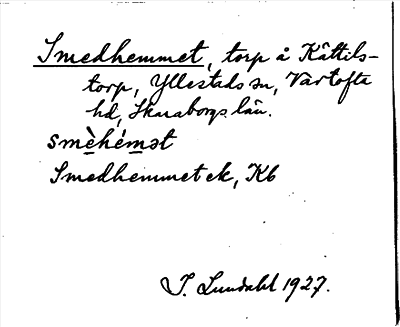 Smedhemmet, torp å Kättils-
torp, Yllestads sn, Vartofta
hd, Skaraborgs län.
smèhémət
Smedhemmet ek, Kb
I. Lundahl 1927.